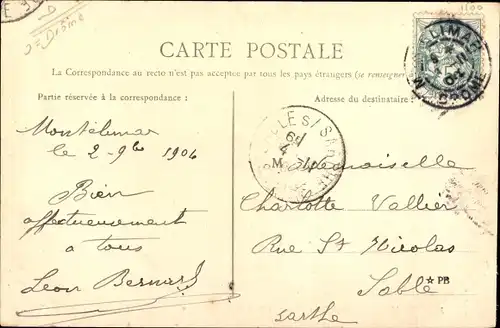 D = Drôme
1500
CARTE POSTALE
La Correspondance au recto n'est pas acceptée par tous les pays étrangers (se renseigner
Partie réservée à la correspondance :
Adresse du destinataire :
Montélimar
le 2-9bre 1904
Bien
affectueusement
a tous
Léon Bernard
SABLES/SARTHE
M ademoiselle
Charlotte Vallier
Rue St Nicolas
Sablé
PB
Sarthe